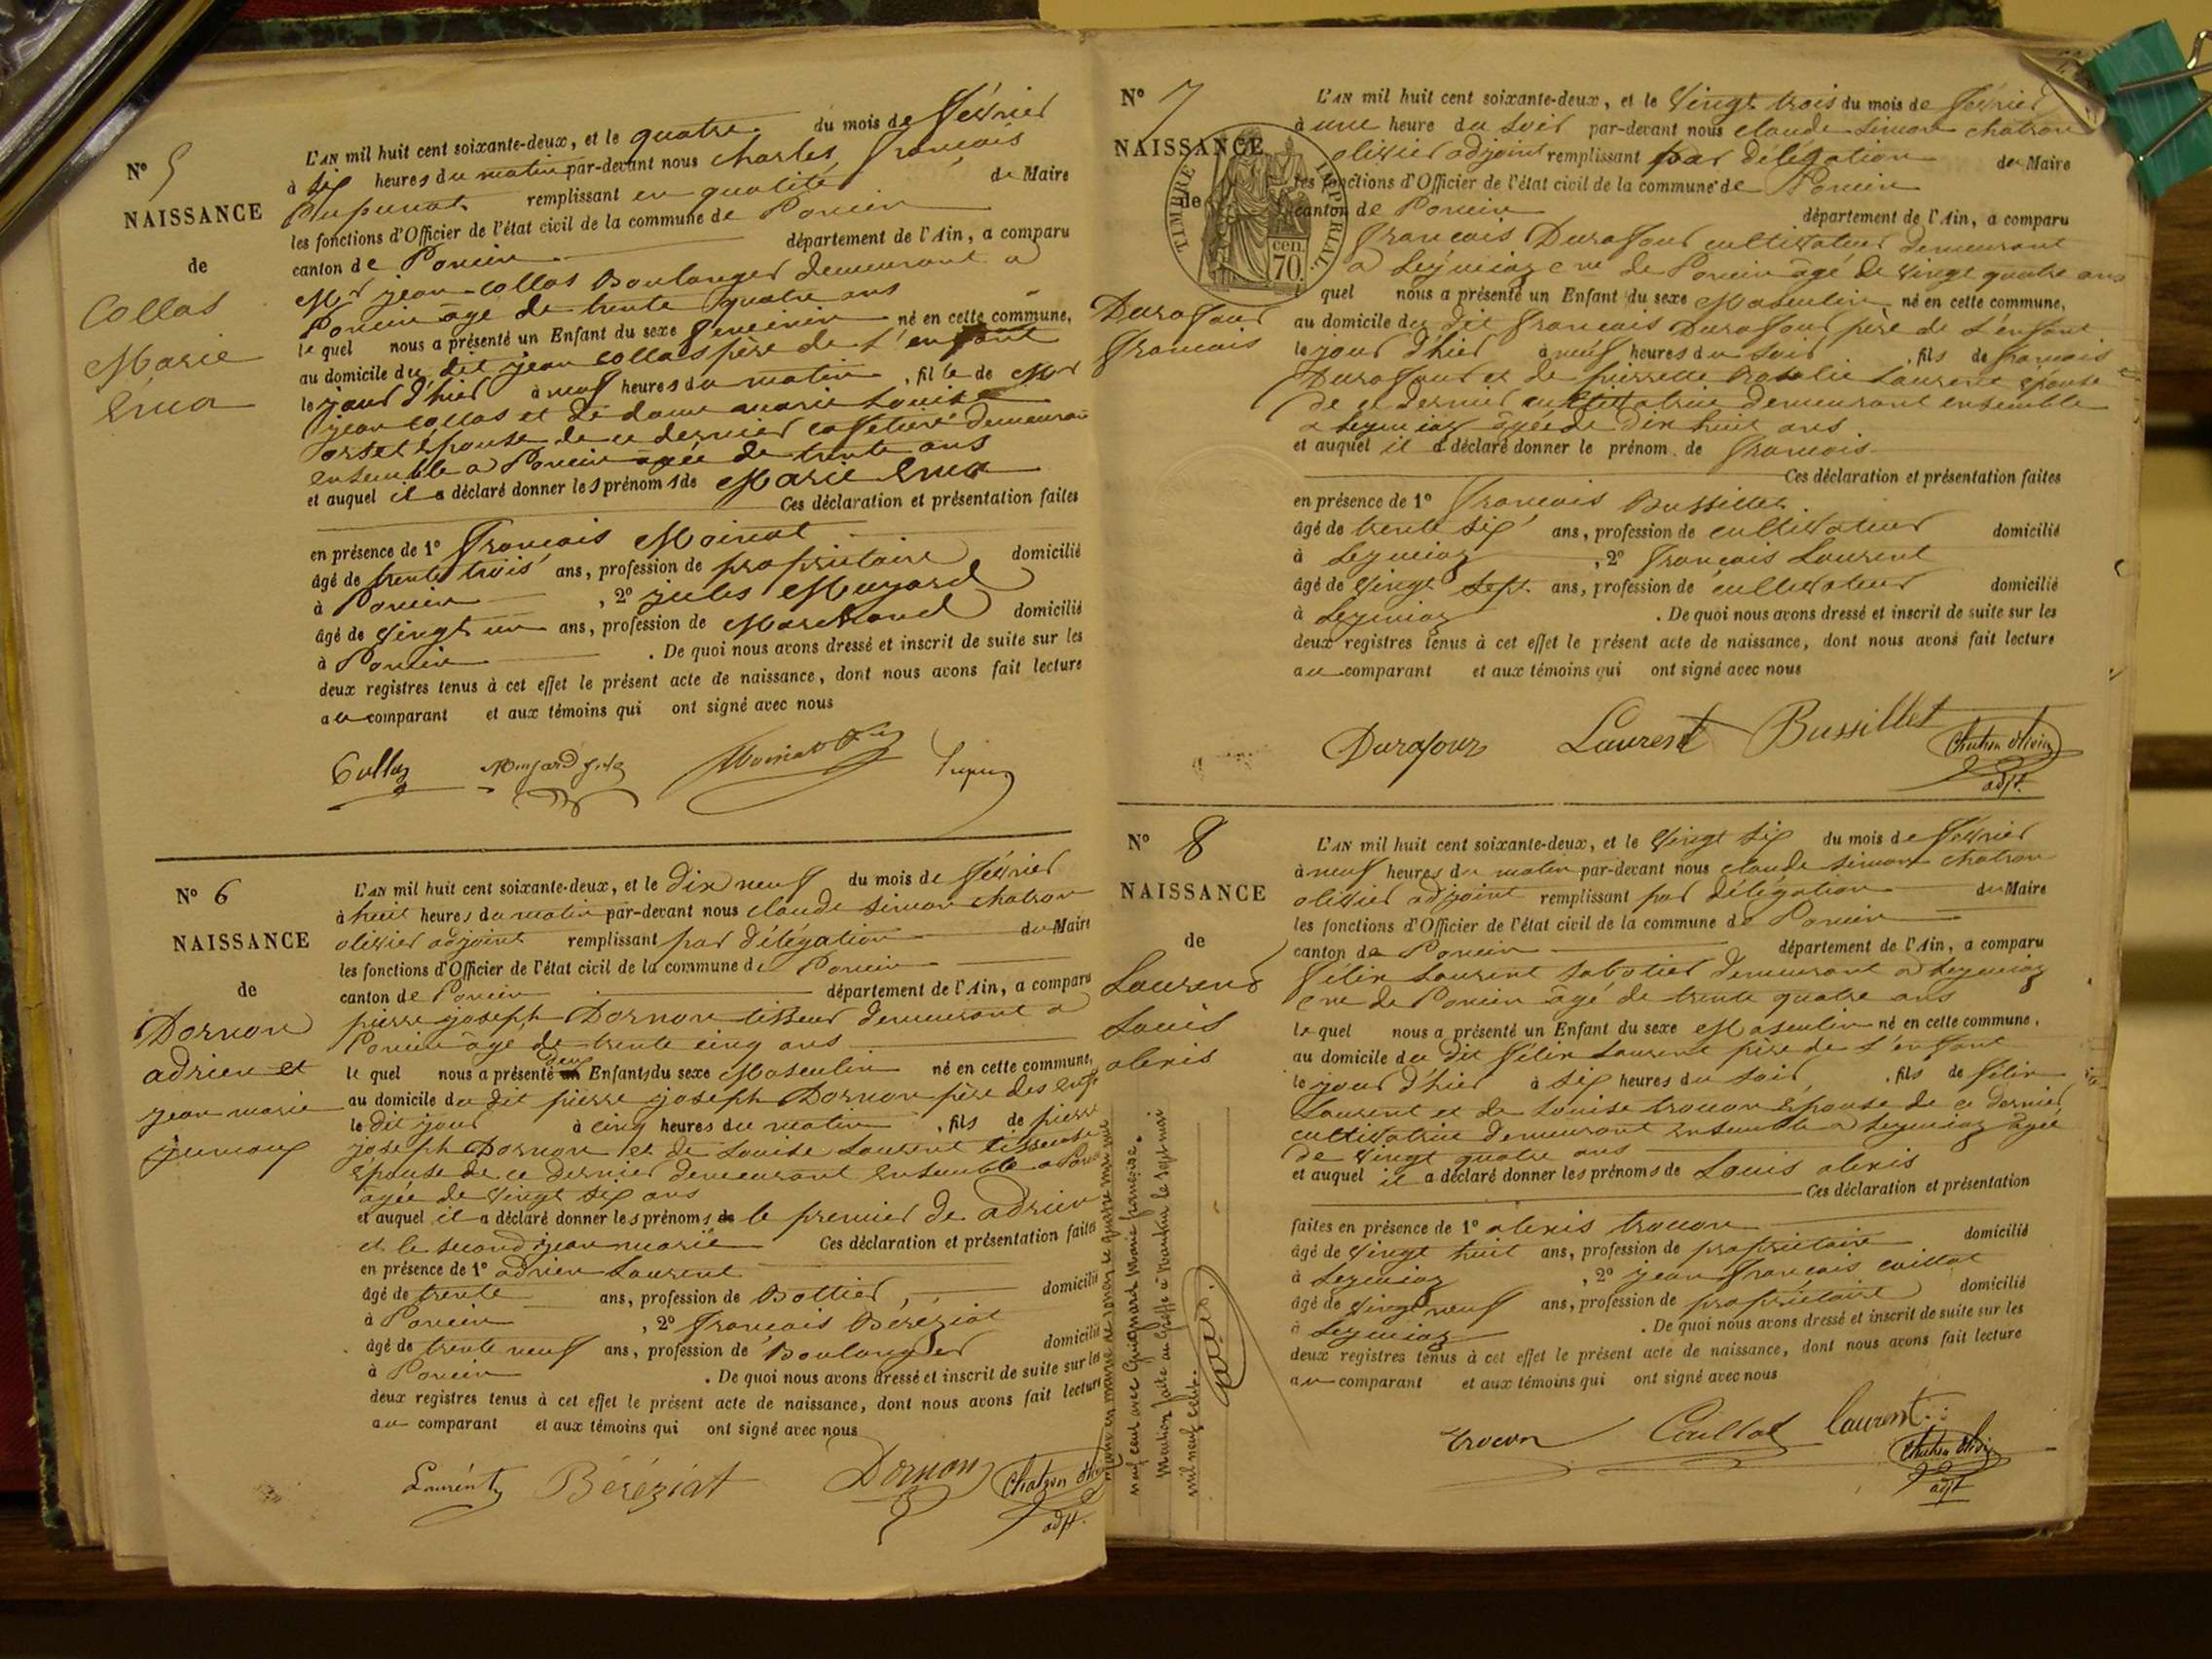 N° 5
NAISSANCE
de
Collas
Marie
Erna
L'AN mil huit cent soixante-deux, et le quatre du mois de février
à six heures du matin par-devant nous Charles, François
remplissant en qualité de Maire
les fonctions d'Officier de l'état civil de la commune de Poncin
canton de Poncin département de l'Ain, a comparu
Mr jean Collas Boulanger demeurant a
Poncin âgé de trente quatre ans
le quel nous a présenté un Enfant du sexe féminin né en cette commune,
au domicile du dit jean Collas père de l'enfant
le jour d'hier à neuf heures du matin, fille de Mr
jean Collas et de dame marie Louise
épouse de ce dernier cafetière demeurant
ensemble a Poncin agée de trente ans
et auquel il a déclaré donner les prénoms de Marie Erna
Ces déclaration et présentation faites
en présence de 1° François Moinat
âgé de trente trois ans, profession de propriétaire domicilié
à Poncin, 2° jules Mugard
âgé de vingt un ans, profession de Marchand domicilié
à Poncin. De quoi nous avons dressé et inscrit de suite sur les
deux registres tenus à cet effet le présent acte de naissance, dont nous avons fait lecture
au comparant et aux témoins qui ont signé avec nous
N° 6
NAISSANCE
de
Dornon
adrien et
jean marie
jumeaux
L'AN mil huit cent soixante-deux, et le dix neuf du mois de février
à huit heures du matin par-devant nous claude simon chatron
olivier adjoint remplissant par délégation du Maire
les fonctions d'Officier de l'état civil de la commune de Poncin
canton de Poncin département de l'Ain, a comparu
pierre joseph Dornon tisseur demeurant a
Poncin âgé de trente cinq ans
le quel nous a présenté deux Enfants du sexe Masculin né en cette commune,
au domicile du dit pierre joseph Dornon père des enfts
le dit jour à cinq heures du matin, fils de pierre
joseph Dornon et de Louise Laurent tisseuse
épouse de ce dernier demeurant ensemble a Poncin
agée de vingt six ans
et auquel il a déclaré donner les prénoms de le premier de adrien
et le second jean marie Ces déclaration et présentation faites
en présence de 1° adrien Laurent
âgé de trente ans, profession de Bottier, domicilié
à Poncin, 2° François Béréziat
âgé de trente neuf ans, profession de Boulanger domicilié
à Poncin. De quoi nous avons dressé et inscrit de suite sur les
deux registres tenus à cet effet le présent acte de naissance, dont nous avons fait lecture
au comparant et aux témoins qui ont signé avec nous
Laurent Béréziat Dornon Chatron Olivier
adjt.
N° 7
NAISSANCE
de
TIMBRE IMPERIAL
70 cen.
Durafour
François
L'AN mil huit cent soixante-deux, et le vingt trois du mois de février
à une heure du soir par-devant nous claude simon chatron
olivier adjoint remplissant par délégation du Maire
les fonctions d'Officier de l'état civil de la commune de Poncin
canton de Poncin département de l'Ain, a comparu
François Durafour cultivateur demeurant
a Leymiaz cne de Poncin âgé de vingt quatre ans
quel nous a présenté un Enfant du sexe Masculin né en cette commune,
au domicile du dit François Durafour père de l'enfant
le jour d'hier à neuf heures du soir, fils de françois
Durafour et de pierrette Rosalie Laurent épouse
de ce dernier cultivatrice demeurant ensemble
a Leymiaz agée de dix huit ans
et auquel il a déclaré donner le prénom de François
Ces déclaration et présentation faites
en présence de 1° François Bussillet
âgé de trente six ans, profession de cultivateur domicilié
à Leymiaz, 2° François Laurent
âgé de vingt sept ans, profession de cultivateur domicilié
à Leymiaz. De quoi nous avons dressé et inscrit de suite sur les
deux registres tenus à cet effet le présent acte de naissance, dont nous avons fait lecture
au comparant et aux témoins qui ont signé avec nous
Durafour Laurent Bussillet Chatron Olivier
adjt.
N° 8
NAISSANCE
de
Laurent
Louis
alexis
L'AN mil huit cent soixante-deux, et le vingt six du mois de février
à neuf heures du matin par-devant nous claude simon chatron
olivier adjoint remplissant par délégation du Maire
les fonctions d'Officier de l'état civil de la commune de Poncin
canton de Poncin département de l'Ain, a comparu
félix Laurent sabotier demeurant a Leymiaz
cne de Poncin âgé de trente quatre ans
le quel nous a présenté un Enfant du sexe Masculin né en cette commune,
au domicile du dit félix Laurent père de l'enfant
le jour d'hier à six heures du soir, fils de félix
Laurent et de Louise trocon épouse de ce dernier
cultivatrice demeurant ensemble a Leymiaz agée
de vingt quatre ans
et auquel il a déclaré donner les prénoms de Louis alexis
Ces déclaration et présentation
faites en présence de 1° alexis trocon
âgé de vingt huit ans, profession de propriétaire domicilié
à Leymiaz, 2° jean françois caillat
âgé de vingt neuf ans, profession de propriétaire domicilié
à Leymiaz. De quoi nous avons dressé et inscrit de suite sur les
deux registres tenus à cet effet le présent acte de naissance, dont nous avons fait lecture
au comparant et aux témoins qui ont signé avec nous
trocon Caillat Laurent Chatron Olivier
adjt
neuf cent avec Guignard Marie françoise.
Mention faite au Greffe à Nantua le sept mai
mil neuf cent.